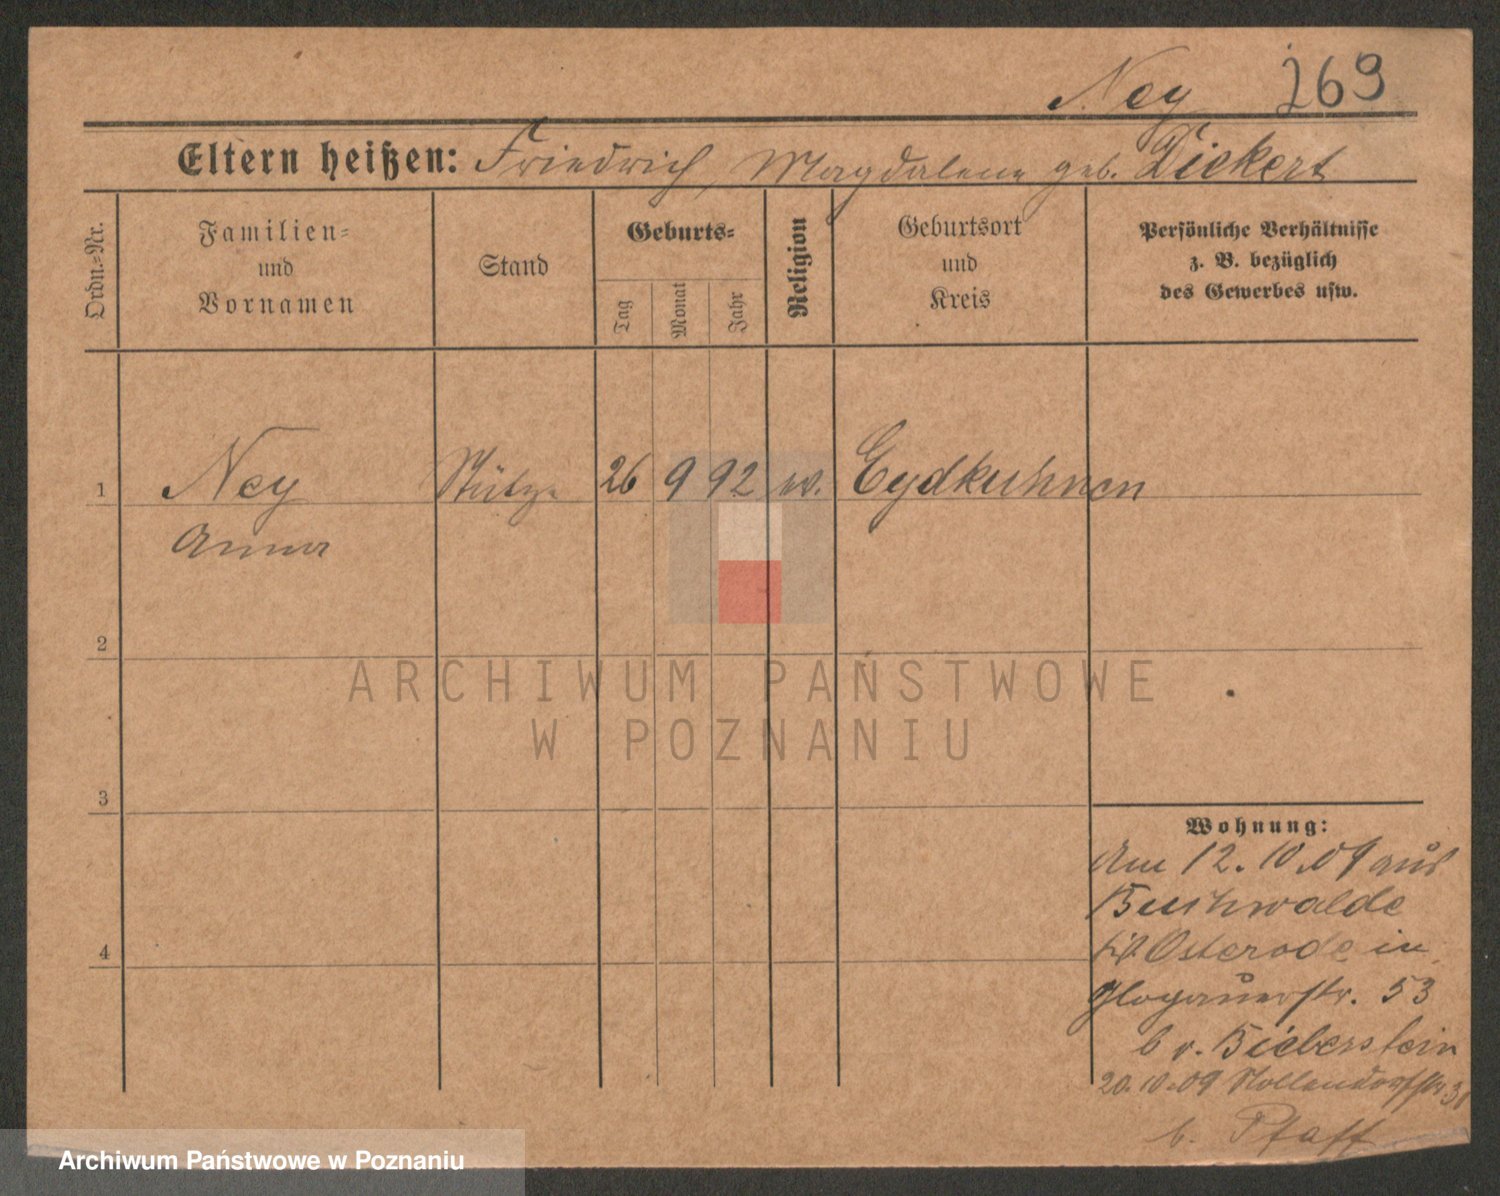 Ney 269
Eltern heißen: Friedrich, Magdalene geb. Diekert
Ordn.=Nr.
Familien=
und
Vornamen
Stand
Geburts=
Tag
Monat
Jahr
Religion
Geburtsort
und
Kreis
Persönliche Verhältnisse
z. B. bezüglich
des Gewerbes usw.
1 Ney Stütze 26 9 92 Eydkuhnen
Anna
2
3
4
Wohnung:
Am 12.10.09 aus
Buchwalde
Osterode in
Glogauerstr. 53
b v. Bieberstein
20.10.09 Nollendorfstr 31
b. Pfaff
ARCHIWUM PAŃSTWOWE
W POZNANIU
Archiwum Państwowe w Poznaniu